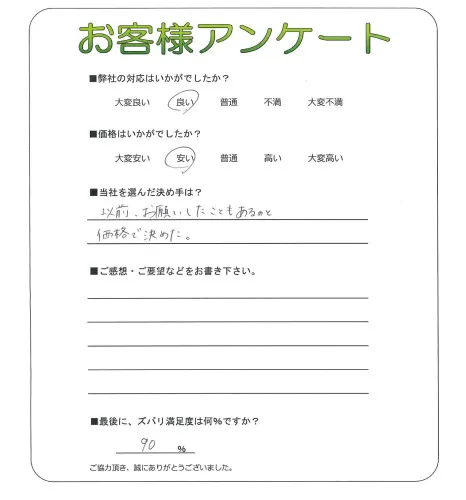 お客様アンケート
■弊社の対応はいかがでしたか？
大変良い 良い 普通 不満 大変不満
■価格はいかがでしたか？
大変安い 安い 普通 高い 大変高い
■当社を選んだ決め手は？
以前、お願いしたこともあるのと
価格で決めた。
■ご感想・ご要望などをお書き下さい。
■最後に、ズバリ満足度は何%ですか？
90 %
ご協力頂き、誠にありがとうございました。